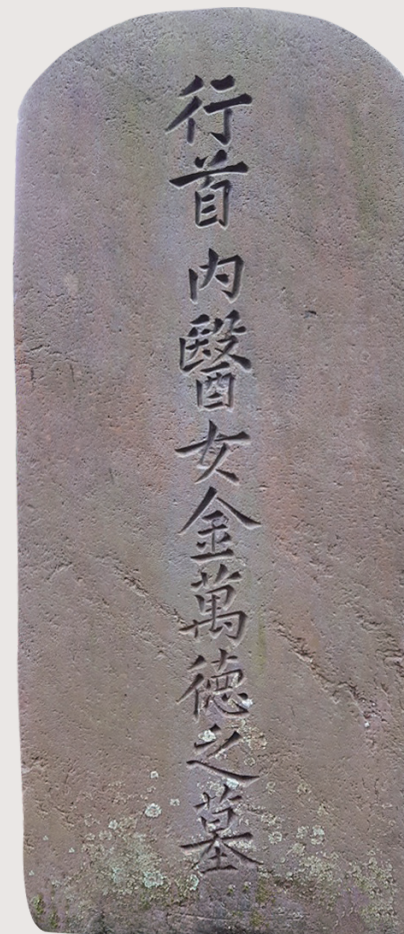 行首内醫女金萬徳之墓